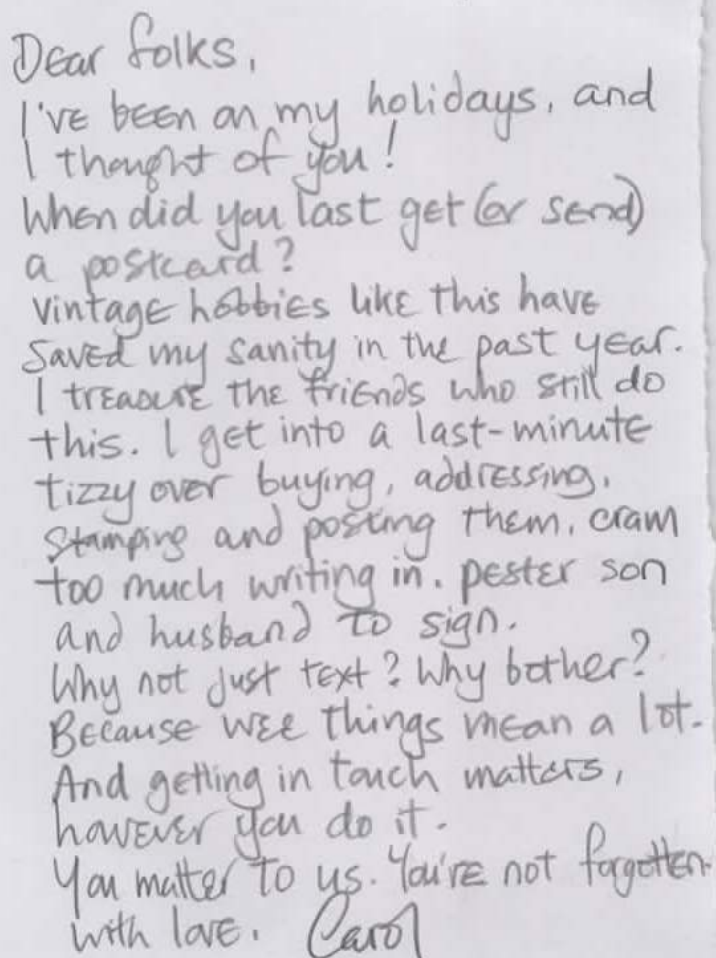 Dear folks,
I've been on my holidays, and
I thought of you!
When did you last get (or send)
a postcard?
Vintage hobbies like this have
saved my sanity in the past year.
I treasure the friends who still do
this. I get into a last-minute
tizzy over buying, addressing,
stamping and posting them, cram
too much writing in. pester son
and husband to sign.
Why not just text? Why bother?
Because wee things mean a lot.
And getting in touch matters,
however you do it.
You matter to us. You're not forgotten.
with love. Carol